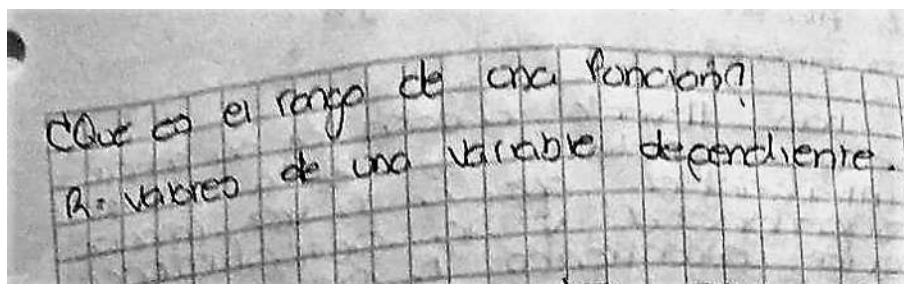 ¿Que es el rango de una función?
R= valores de una variable dependiente.